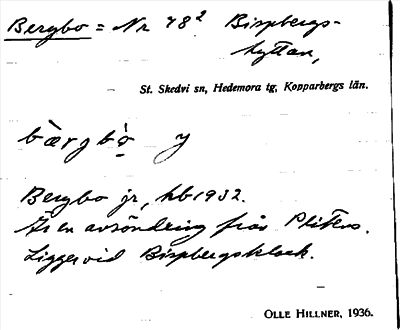 Bergbo = Nr 48² Bispbergs-
hyttan,
St. Skedvi sn, Hedemora tg, Kopparbergs län.
bærgbo y
Bergbo jr, hb 1932.
Är en avsöndring från
Ligger vid Bispbergsklack.
OLLE HILLNER, 1936.